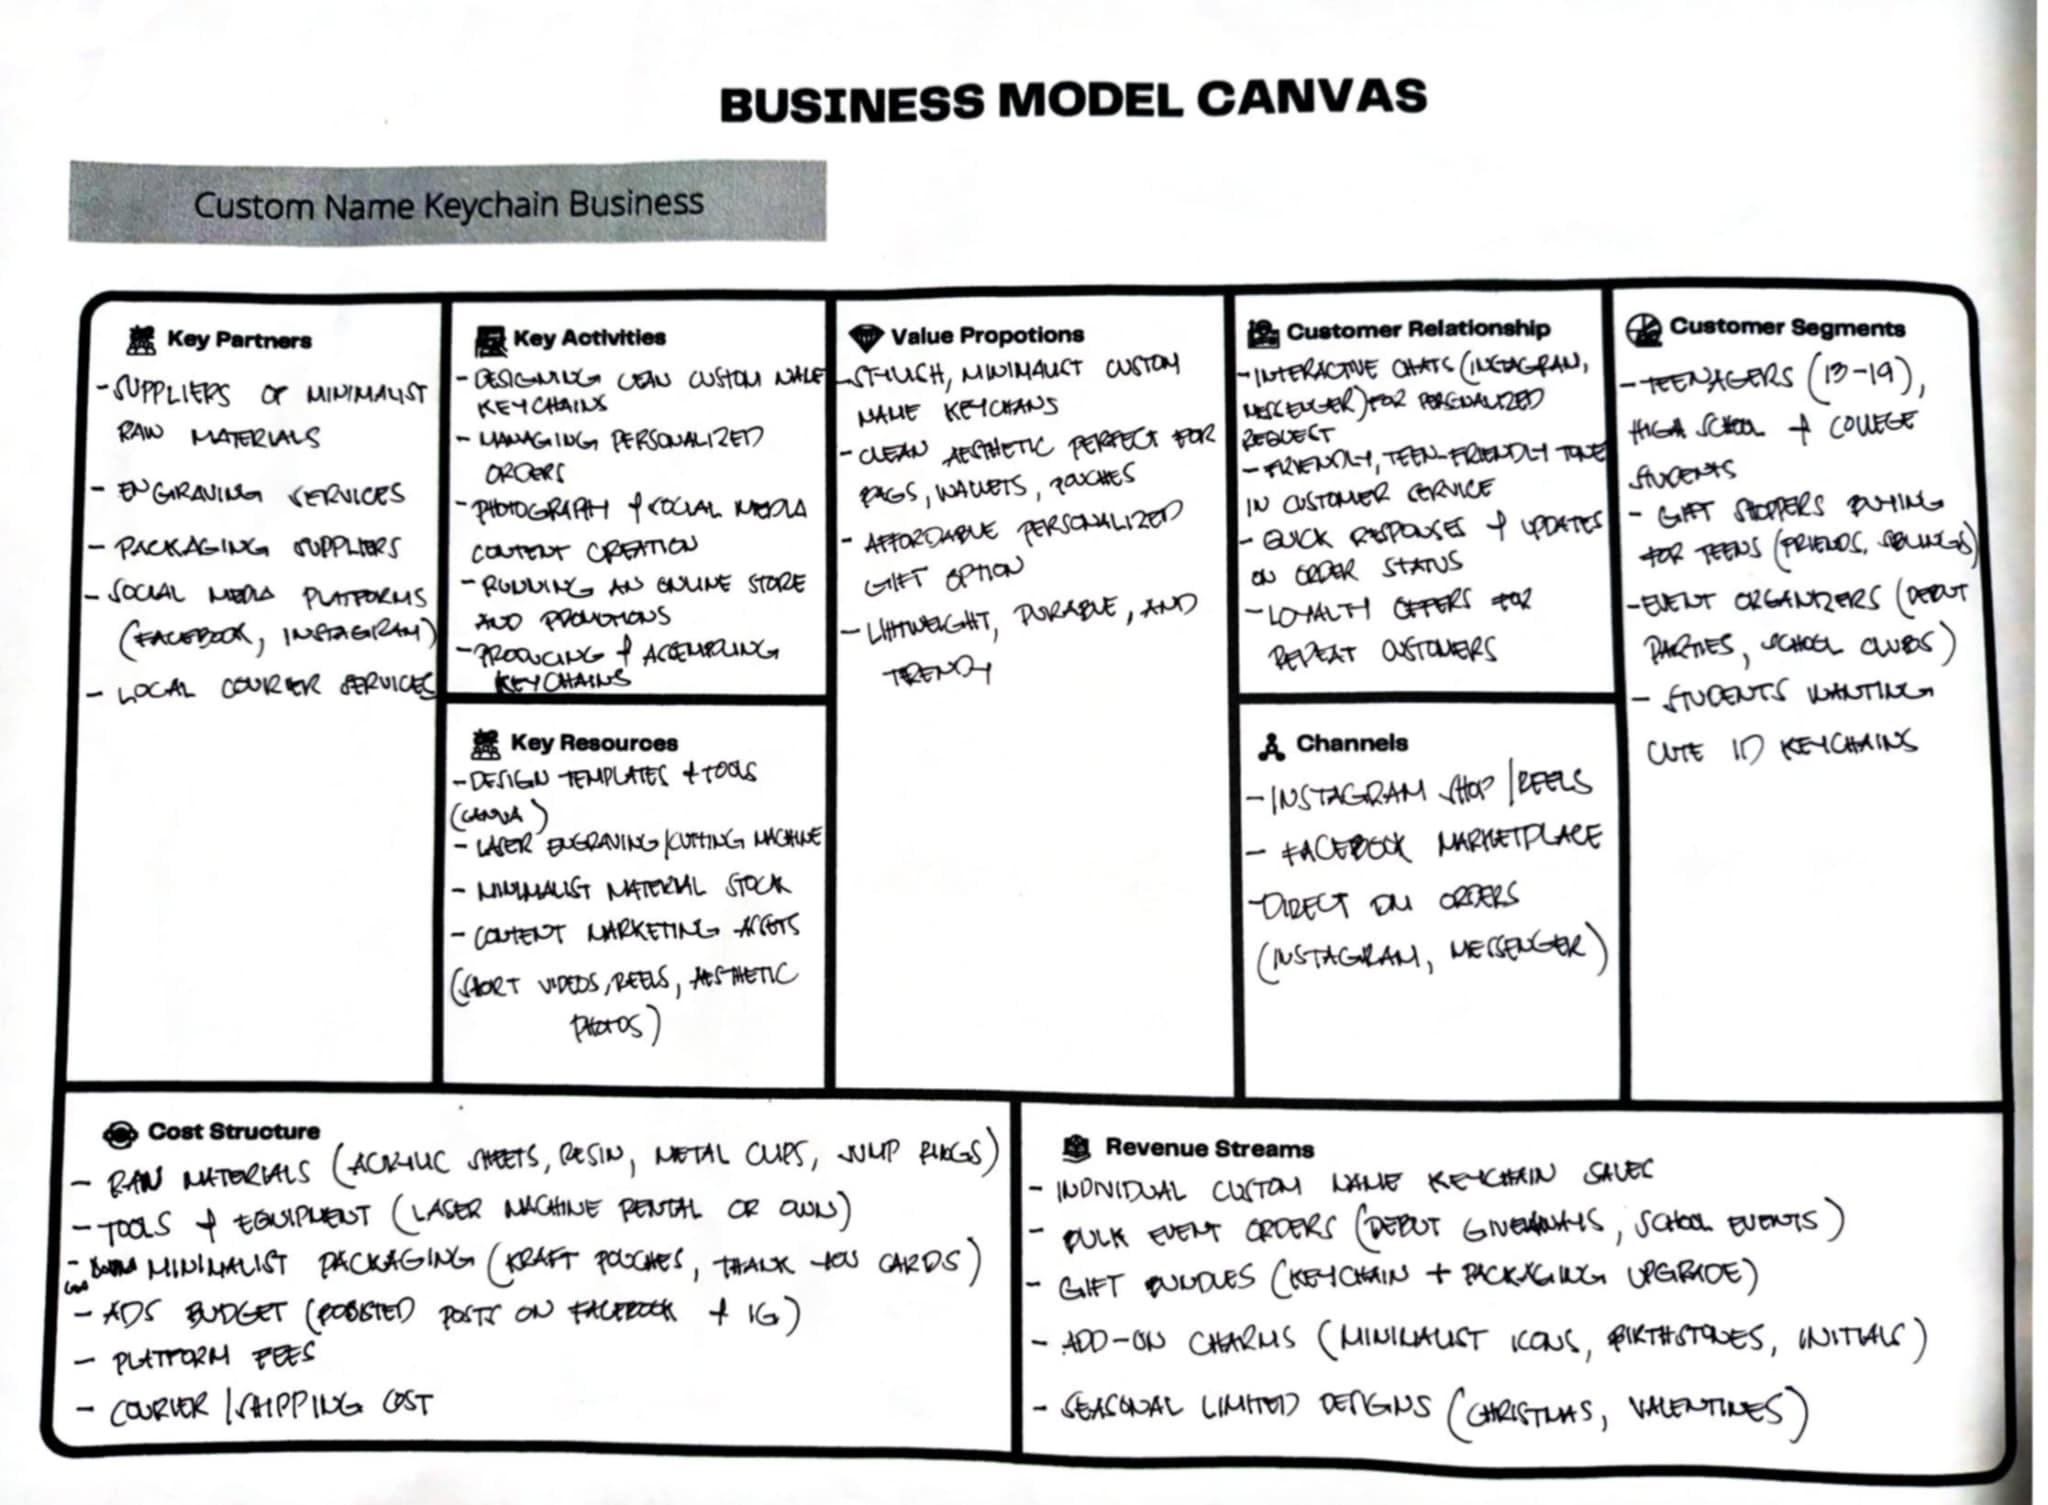 BUSINESS MODEL CANVAS
Custom Name Keychain Business
Key Partners
- SUPPLIERS OF MINIMALIST
RAW MATERIALS
- ENGRAVING SERVICES
- PACKAGING SUPPLIERS
- SOCIAL MEDIA PLATFORMS
(FACEBOOK, INSTAGRAM)
- LOCAL COURIER SERVICES
Key Activities
- DESIGNING CLEAN CUSTOM NAME
KEYCHAINS
- MANAGING PERSONALIZED
ORDERS
- PHOTOGRAPHY & SOCIAL MEDIA
CONTENT CREATION
- RUNNING AN ONLINE STORE
AND PROMOTIONS
- PRODUCING & ASSEMBLING
KEYCHAINS
Key Resources
- DESIGN TEMPLATES & TOOLS
(CANVA)
- LASER ENGRAVING/CUTTING MACHINE
- MINIMALIST MATERIAL STOCK
- CONTENT MARKETING ASSETS
(SHORT VIDEOS, REELS, AESTHETIC
PHOTOS)
Value Propotions
- STYLISH, MINIMALIST CUSTOM
NAME KEYCHANS
- CLEAN AESTHETIC PERFECT FOR
BAGS, WALLETS, POUCHES
- AFFORDABLE PERSONALIZED
GIFT OPTION
- LIHTWEIGHT, DURABLE, AND
TRENDY
Customer Relationship
- INTERACTIVE CHATS (INSTAGRAM,
MESSENGER) FOR PERSONALIZED
REQUEST
- FRIENDLY, TEEN-FRIENDLY TONE
IN CUSTOMER SERVICE
- QUICK RESPONSES & UPDATES
ON ORDER STATUS
- LOYALTY OFFERS FOR
REPEAT CUSTOMERS
Channels
- INSTAGRAM SHOP/REELS
- FACEBOOK MARKETPLACE
- DIRECT DM ORDERS
(INSTAGRAM, MESSENGER)
Customer Segments
- TEENAGERS (13-19),
HIGH SCHOOL & COLLEGE
STUDENTS
- GIFT SHOPPERS BUYING
FOR TEENS (FRIENDS, SIBLINGS)
- EVENT ORGANIZERS (DEBUT
PARTIES, SCHOOL CLUBS)
- STUDENTS WANTING
CUTE ID KEYCHAINS
Cost Structure
- RAW MATERIALS (ACRYLIC SHEETS, RESIN, METAL CLIPS, JUMP RINGS)
- TOOLS & EQUIPMENT (LASER MACHINE RENTAL OR OWN)
- MINIMALIST PACKAGING (KRAFT POUCHES, THANK YOU CARDS)
- ADS BUDGET (BOOSTED POSTS ON FACEBOOK & IG)
- PLATFORM FEES
- COURIER/SHIPPING COST
Revenue Streams
- INDIVIDUAL CUSTOM NAME KEYCHAIN SALES
- BULK EVENT ORDERS (DEBUT GIVEAWAYS, SCHOOL EVENTS)
- GIFT BUNDLES (KEYCHAIN + PACKAGING UPGRADE)
- ADD-ON CHARMS (MINIMALIST ICONS, BIRTHSTONES, INITIALS)
- SEASONAL LIMITED DESIGNS (CHRISTMAS, VALENTINES)